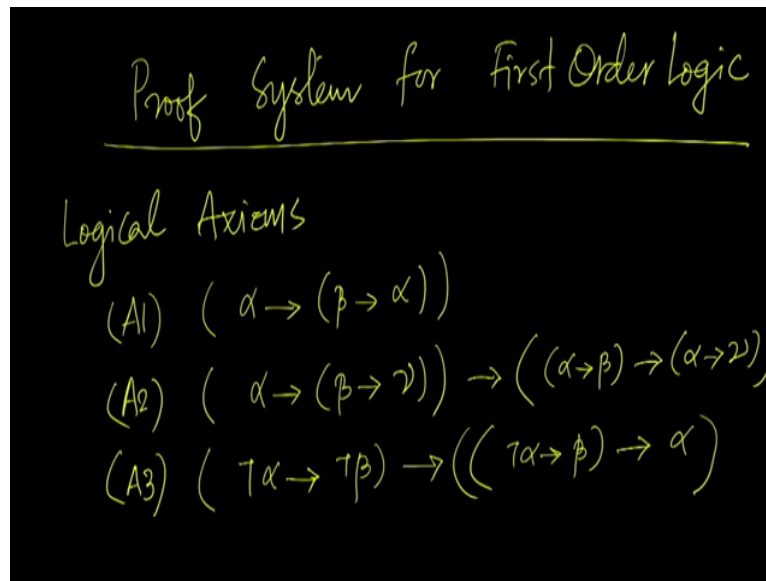 Proof System for First Order Logic
Logical Axioms
(A1) ( α → (β → α))
(A2) ( α → (β → ν)) → ((α→β) → (α→ν))
(A3) ( ¬α → ¬β) → ((¬α → β) → α)